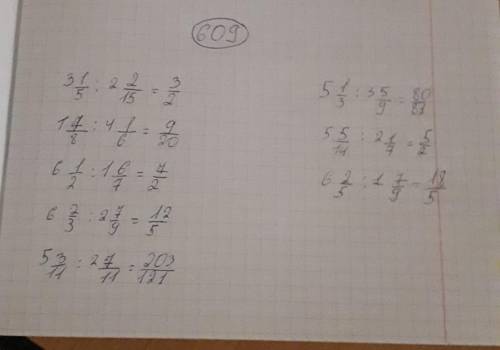 609
3 1/5 : 2 2/15 = 3/2
1 7/8 : 4 1/6 = 9/20
6 1/2 : 1 6/7 = 7/2
6 2/3 : 2 7/9 = 12/5
5 3/11 : 2 7/11 = 203/121
5 1/3 : 3 5/9 =
5 5/14 : 2 1/7 = 5/2
6 2/3 : 1 7/9 =